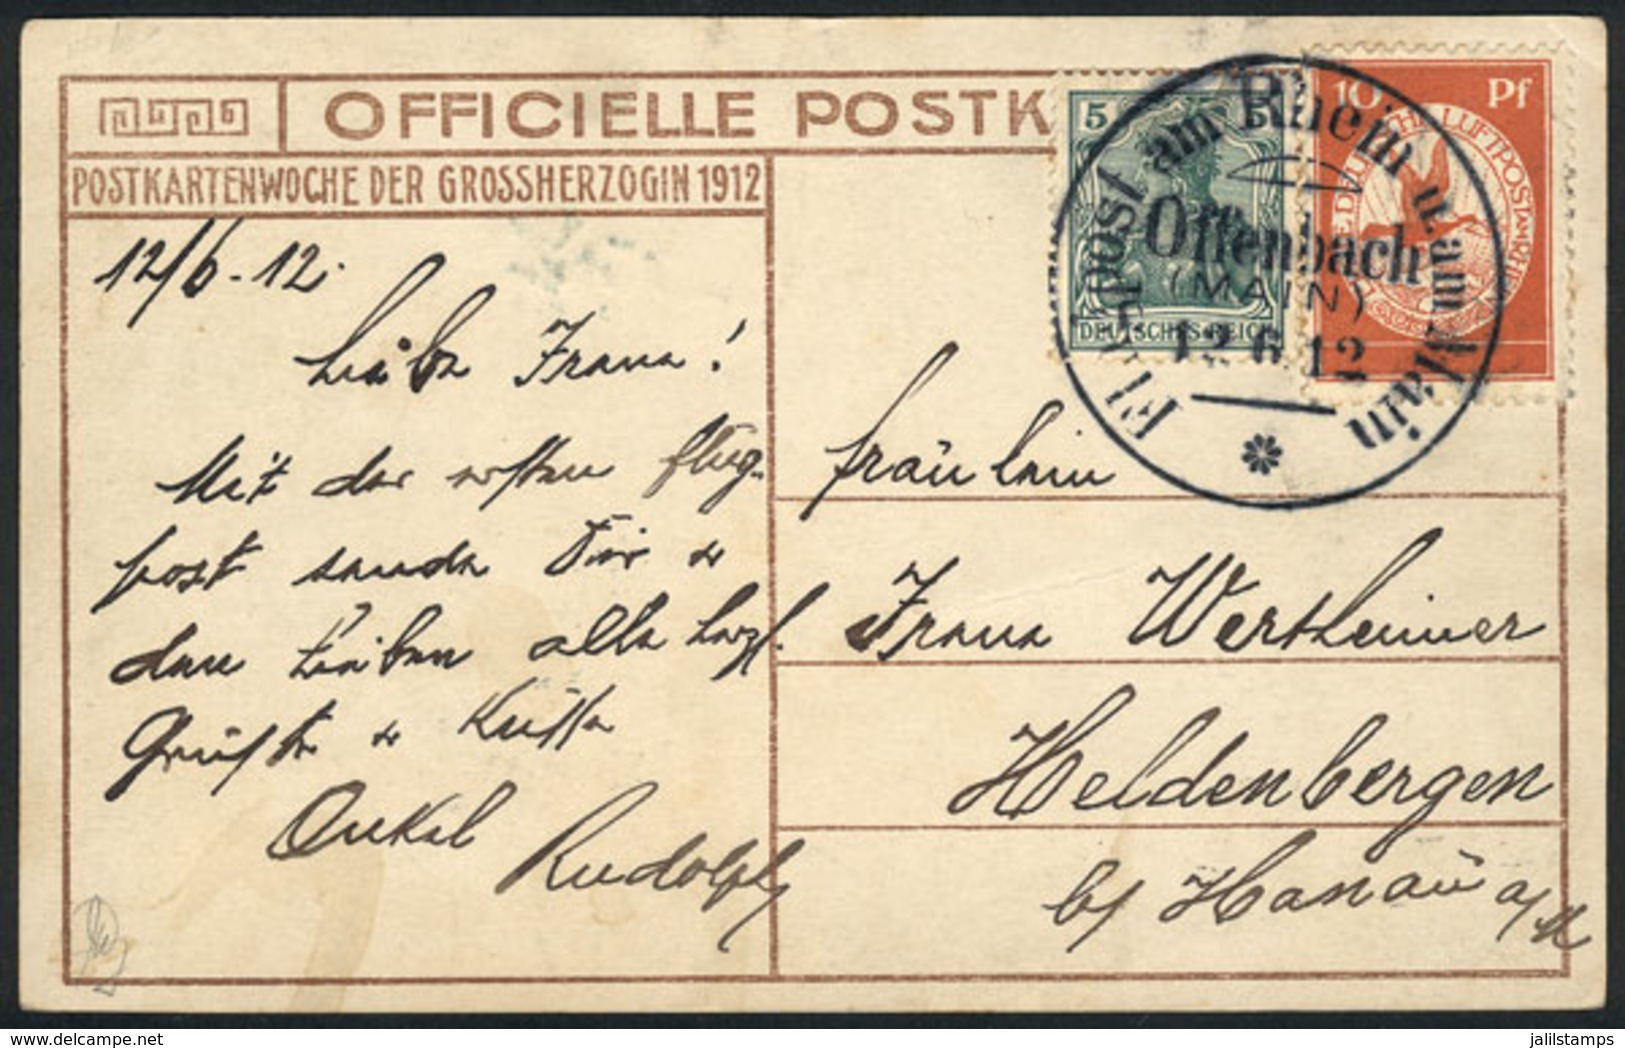 OFFICIELLE POSTK
POSTKARTENWOCHE DER GROSSHERZOGIN 1912
5
DEUTSCHES REICH
10 Pf
LUFTPOST
Flugpost am Rhein u. am Main
Offenbach
(MAIN)
12.6.12
12/6.12.
Liebe Frana!
Mit der ersten Flug-
post sende Dir &
den Lieben alle herzl.
Grüße & Küsse
Onkel Rudolph
Fräulein
Frana Wertheimer
Heldenbergen
b/ Hanau a/M
jalilstamps
delcampe.net